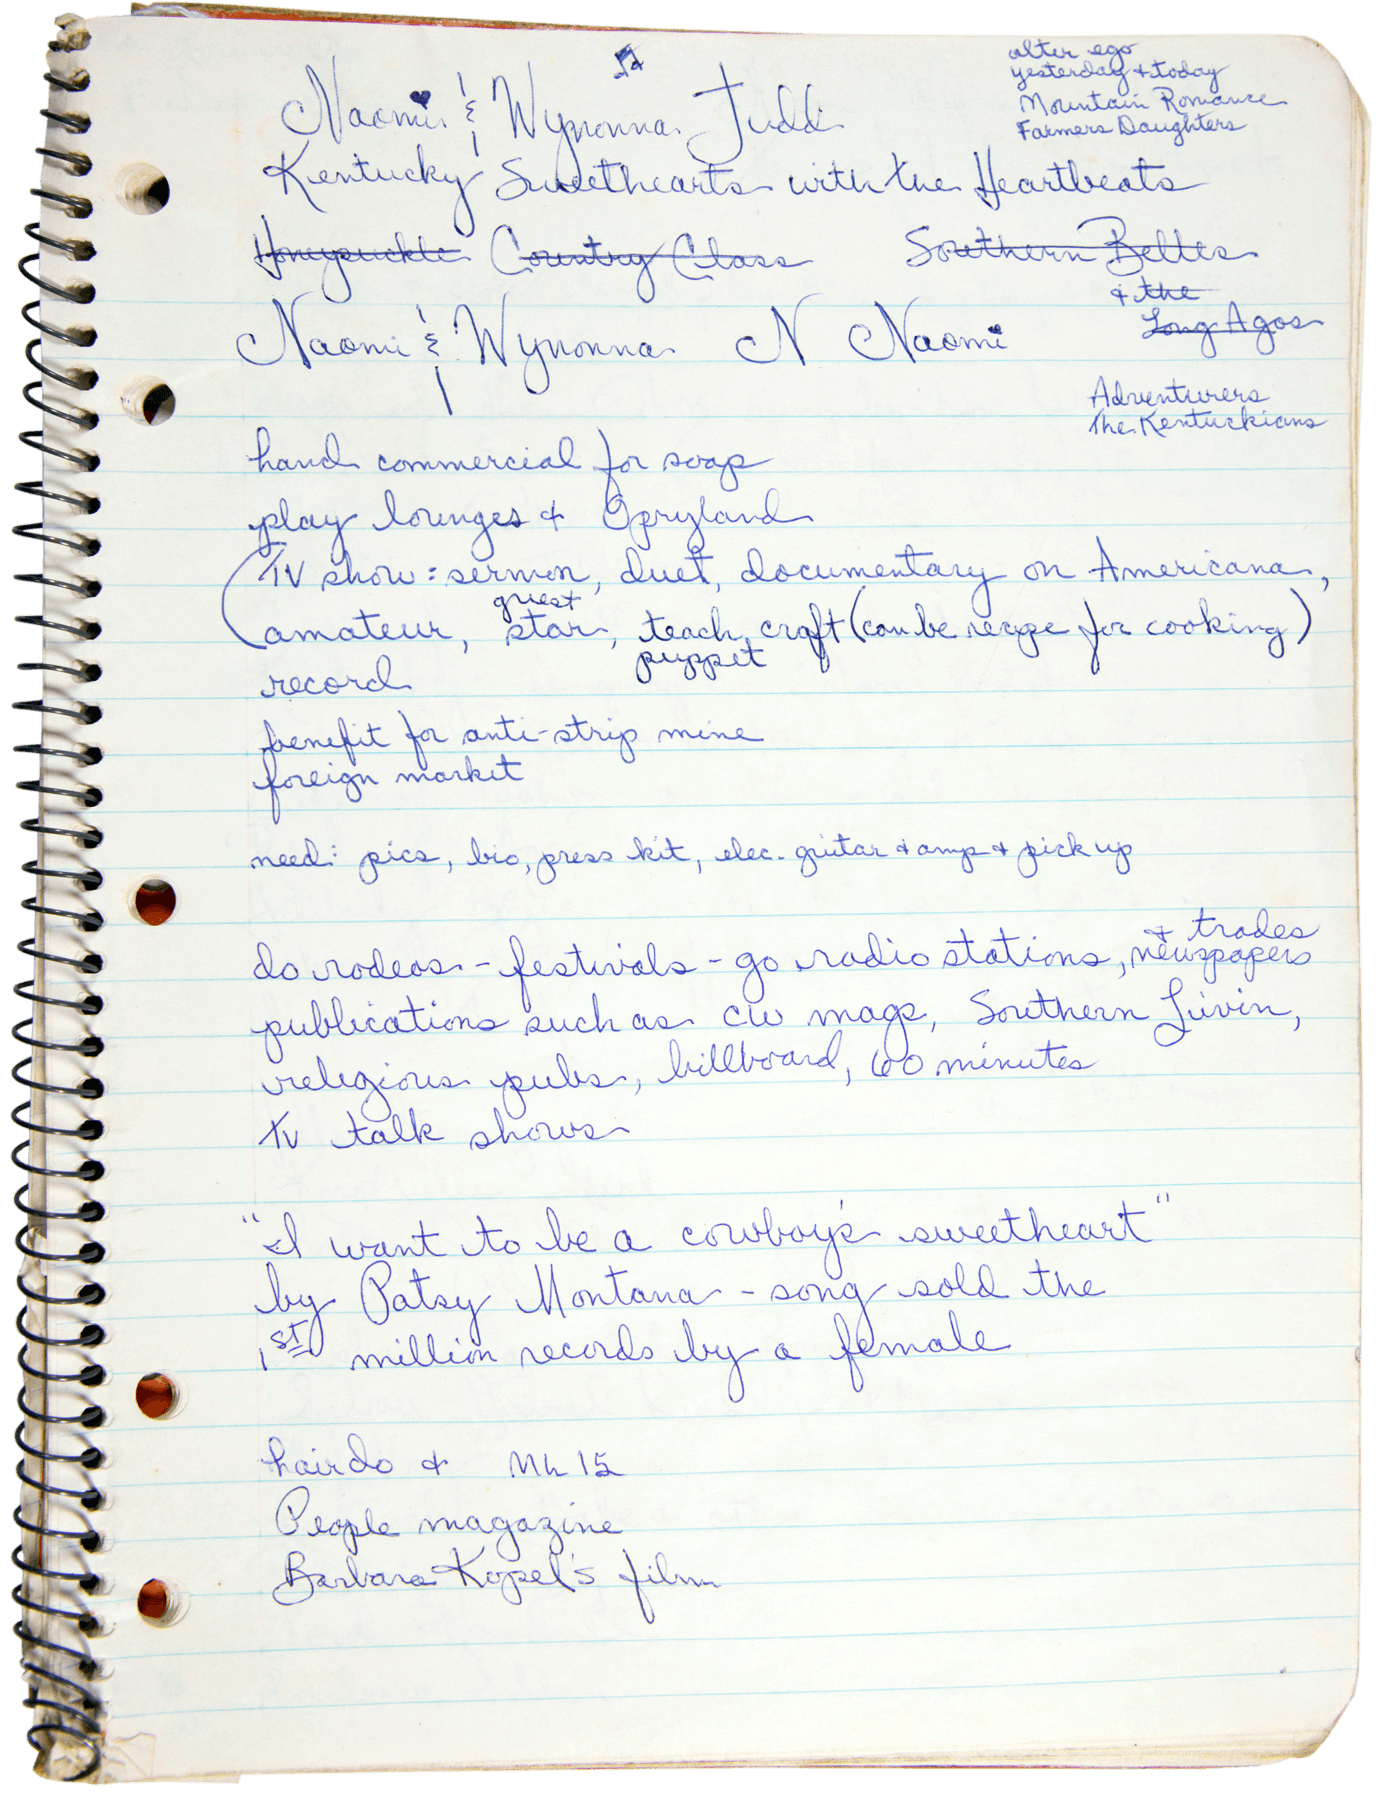 alter ego
yesterday & today
Mountain Romance
Farmers Daughters
Naomi & Wynonna Judd
Kentucky Sweethearts with the Heartbeats
Honeysuckle Country Class Southern Belles
& the
Long Agos
Naomi & Wynonna N Naomi
Adventurers
The Kentuckians
hand commercial for soap
play lounges & Opryland
(TV show: sermon, duet, documentary on Americana,
guest
amateur, star, teach, craft (can be recipe for cooking)
puppet
record
benefit for anti-strip mine
foreign market
need: pics, bio, press kit, elec. guitar & amp & pick up
& trades
do rodeos - festivals - go radio stations, newspapers
publications such as CW mags, Southern Livin,
religious pubs, billboard, 60 minutes
TV talk shows
"I want to be a cowboy's sweetheart"
by Patsy Montana - song sold the
1st million records by a female
hairdo & 15
People magazine
Barbara Kopel's film